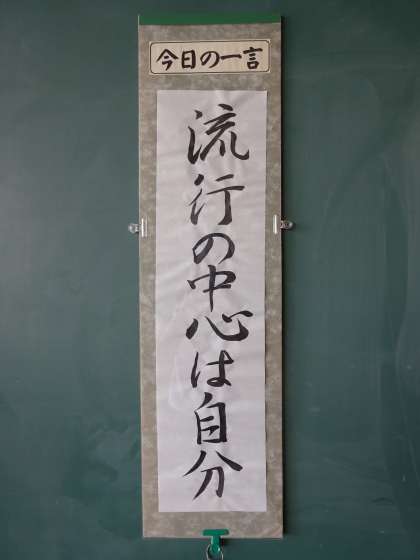 今日の一言
流行の中心は自分